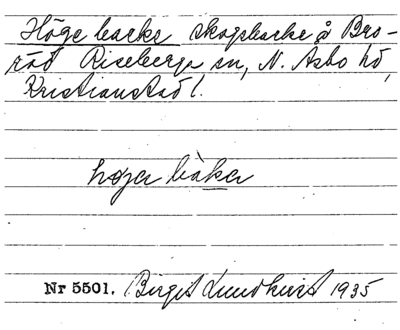 Höge backe skogsbacke å Bro-
röd Riseberga sn, N. Asbo hd,
Kristianstad l.
høgə bàkə
Nr 5501. Birgit Lundkvist 1935